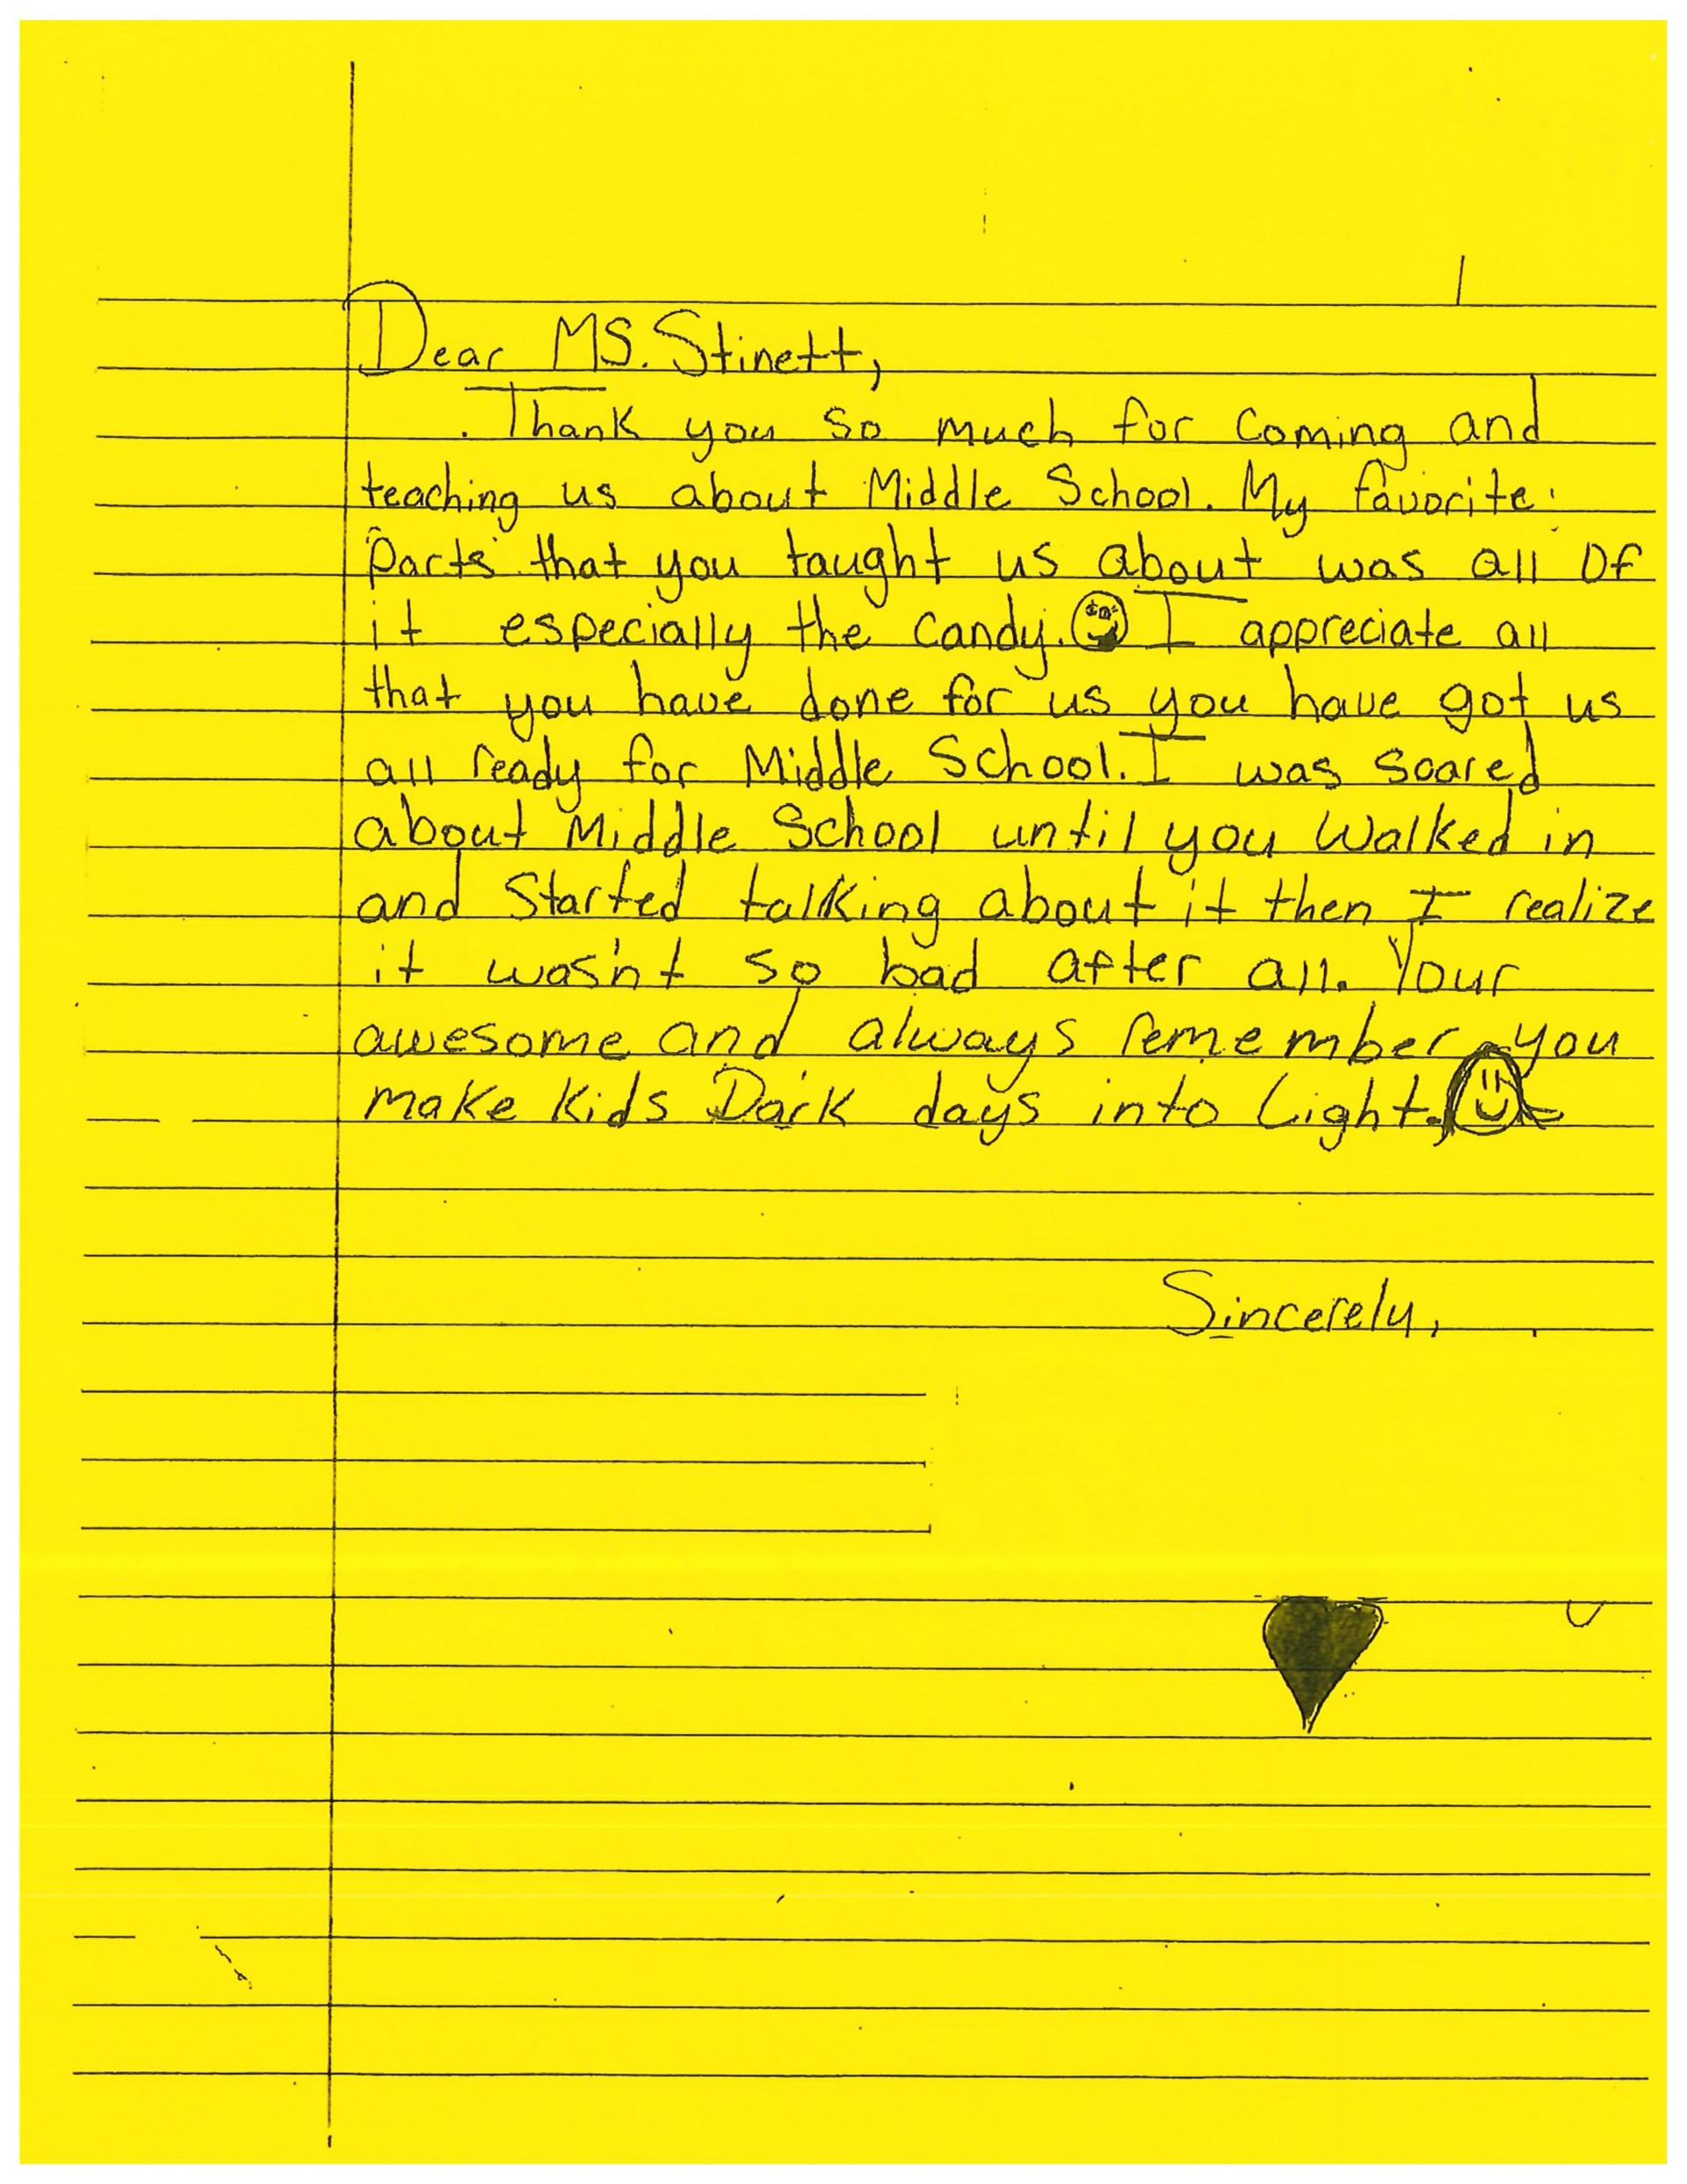 Dear MS. Stinett,
Thank you so much for coming and
teaching us about Middle School. My favorite
parts that you taught us about was all Of
it especially the candy. I appreciate all
that you have done for us you have got us
all ready for Middle School. I was scared
about Middle School until you Walked in
and Started talking about it then I realize
it wasn't so bad after all. Your
awesome and always remember you
make kids Dark days into Light.
Sincerely,